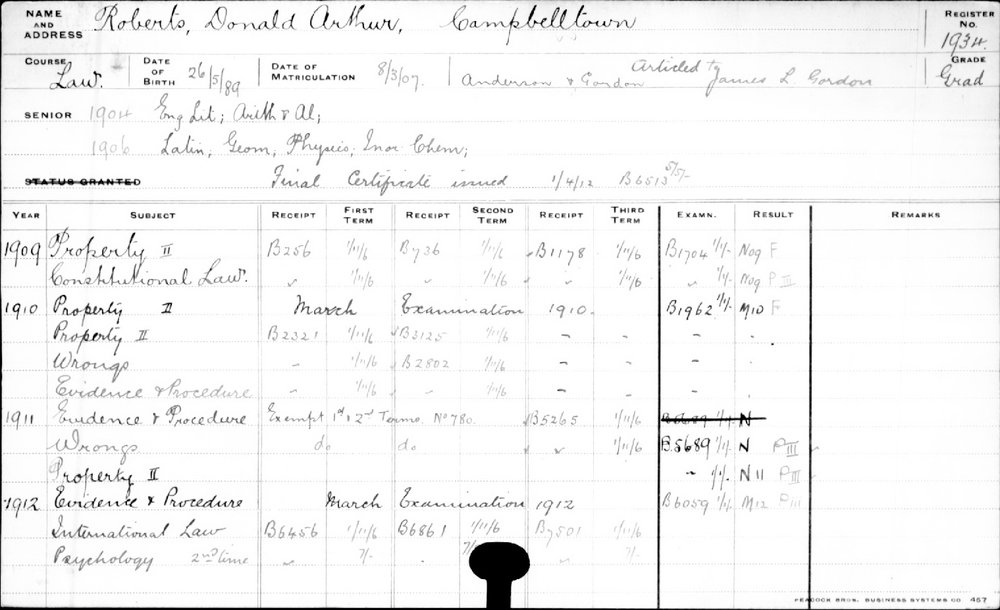 NAME AND ADDRESS Roberts, Donald Arthur, Campbelltown REGISTER No. 1934.
COURSE Law. DATE OF BIRTH 26/5/89 DATE OF MATRICULATION 8/3/07. Articled to Anderson & Gordon James L Gordon GRADE Grad
SENIOR 1904 Eng Lit; Arith & Al;
1906 Latin, Geom, Physics, Inor Chem;
STATUS GRANTED Final Certificate issued 1/4/12 B6513 5/5/-
YEAR SUBJECT RECEIPT FIRST TERM RECEIPT SECOND TERM RECEIPT THIRD TERM EXAMN. RESULT REMARKS
1909 Property II B256 1/11/6 B736 1/11/6 B1178 1/11/6 B1704 1/1/- N09 F
Constitutional Law. " 1/11/6 " 1/11/6 " 1/11/6 " 1/1/- N09 P II
1910 Property II March Examination 1910. B1962 1/1/- M10 F
Property II B2321 1/11/6 B3125 1/11/6 - - - -
Wrongs - 1/11/6 B2802 1/11/6 - - - -
Evidence & Procedure - 1/11/6 - 1/11/6 - - - -
1911 Evidence & Procedure Exempt 1st & 2nd Terms No 780. B5265 1/11/6 B5689 1/1/- N
Wrongs do do " 1/11/6 B5689 1/1/- N P III
Property II " 1/1/- N11 P III
1912 Evidence & Procedure March Examination 1912 B6059 1/1/- M12 P III
International Law B6456 1/11/6 B6861 1/11/6 B7501 1/11/6
Psychology 2nd time " 7/- . 7/- " 7/-
PEACOCK BROS. BUSINESS SYSTEMS CO. 467